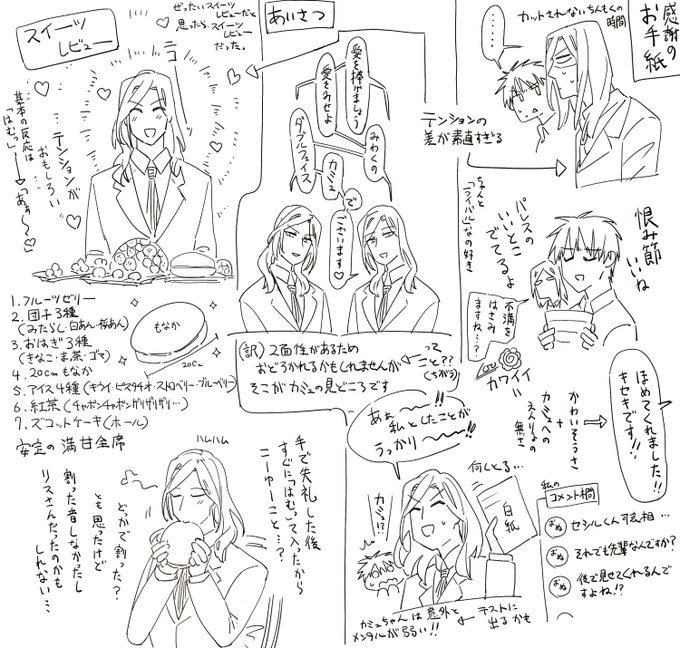 感謝の
お手紙
カットされないちんもくの
時間
……
テンションの
差が素直すぎる
あいさつ
ぜったいスイーツ
レビューだと
思ったら、スイーツ
レビュー
だった。
スイーツ
レビュー
基本の反応は
「はむっ」
→「あぁ〜っ♡」
テンションが
おもしろい
愛を捧げましょう
愛をみせよ
みわくの
ダブルフェイス
カミュ
で
ございます♡
ちゃんと
「ライバル」なの好き
パレスの
いいとこ
でてるよ
恨み節
いいね
不満を
はさみ
ますね…?
カワイイ
=
ほめてくれました!!
キセキです!!
かわいそうさ
カミュへの
えんりょの
無さ
1.フルーツゼリー
2.団子3種
(みたらし・白あん・桜あん)
3.おはぎ3種
(きなこ・ま茶・ゴマ)
4.20cmもなか
5.アイス4種(キウイ・ピスタチオ・ストロベリー・ブルーベリー)
6.紅茶(チャポンチャポンザリザリザリ…)
7.ズコットケーキ(ホール)
安定の満甘全席
もなか
20cm
(訳)2面性があるため
おどろかれるかもしれませんが
そこがカミュの見どころです
って
こと??
(ちがう)
あぁ〜〜!!
私としたことが
うっかり〜〜!!
何しとる…
白紙
カミュ!?
カミュちゃんは意外と
メンタルが弱い!!
テストに
出るかも
私の
コメント欄
セシルくん可哀相…
それでも先輩なんですか?
後で見せてくれるんで
すよね!?
ハムハム
手で失礼した後
すぐに「はむっ」て入ったから
こーゆーこと…?
どっかで割った?
とも思ったけど
割った音しなかったし
リスさんだったのかも
しれない…